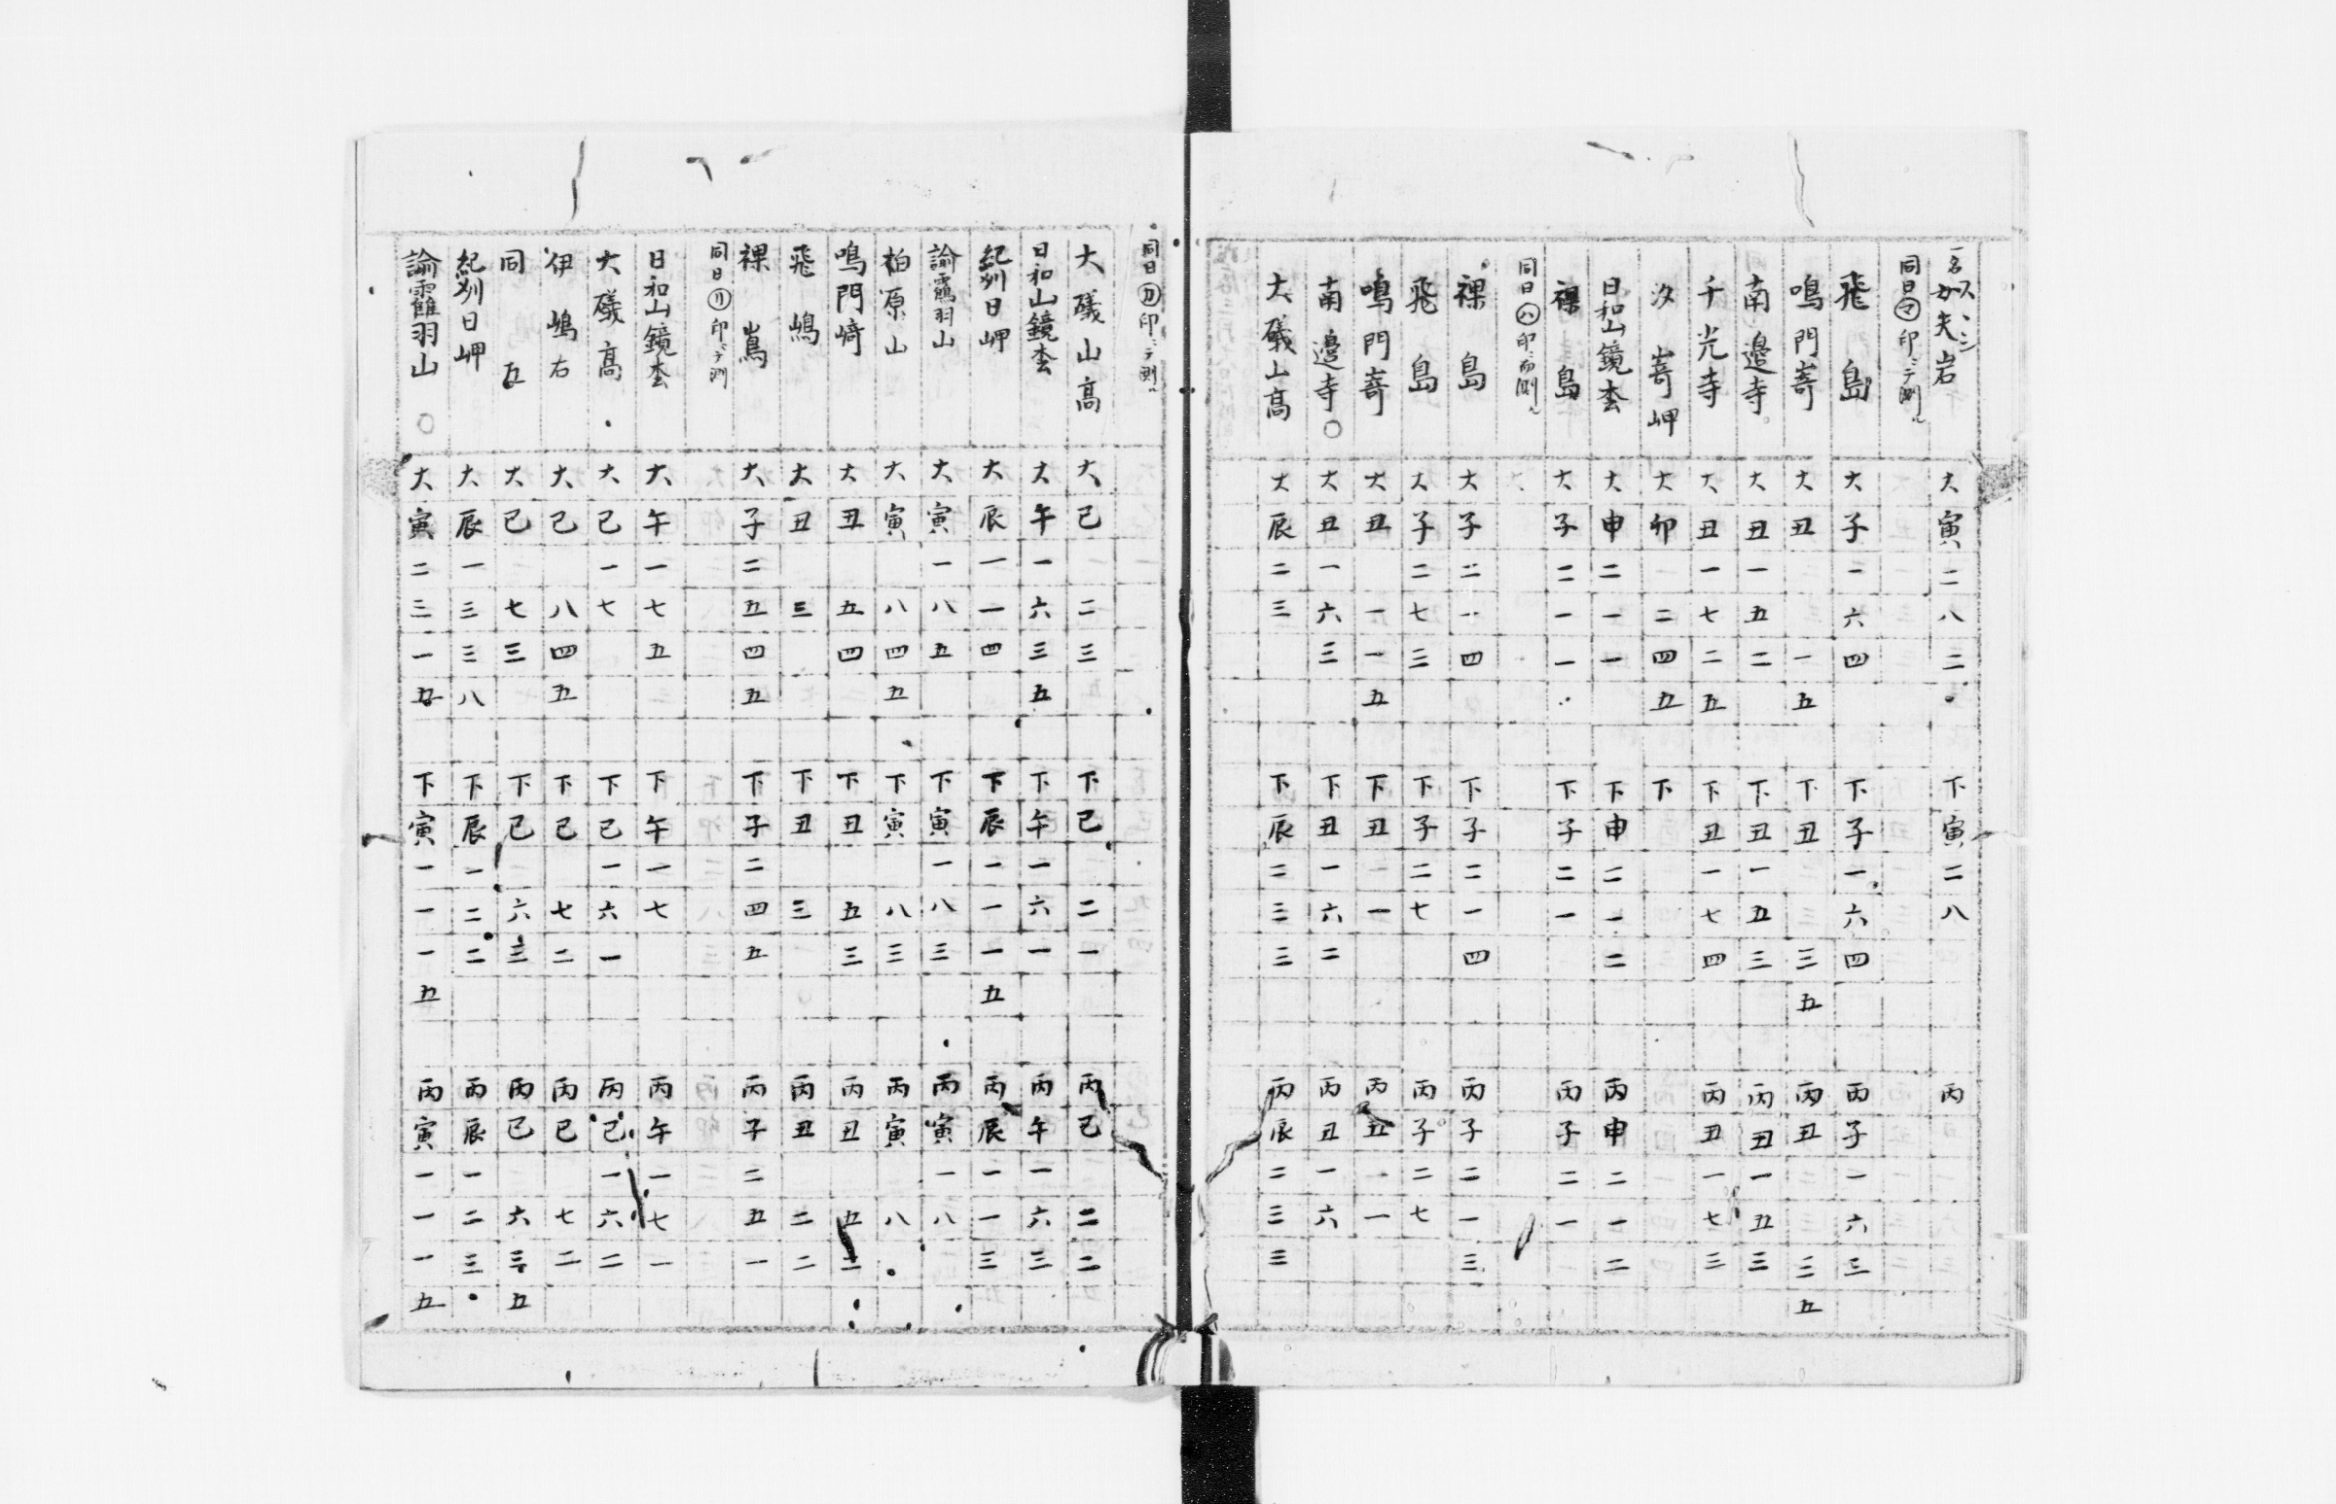 一名スヽシ
加夫岩 大寅二八二 下寅二八 丙
同日㋮印ニテ測ル
飛島 大子一六四 下子一六四 丙子一六三
鳴門嵜 大丑 一五 下丑 三五 丙丑 三五
南邉寺 大丑一五二 下丑一五三 丙丑一五三
千光寺 大丑一七二五 下丑一七四 丙丑一七三
汐嵜岬 大卯 二四五 下
日和山鏡杢 大申二一一 下申二一二 丙申二一二
裸島 大子二一一 下子二一 丙子二一
同日㋩印ニ而測ル
裸島 大子二一四 下子二一四 丙子二一三
飛島 大子二七三 下子二七 丙子二七
鳴門嵜 大丑 一一五 下丑 一 丙丑 一
南邉寺○ 大丑一六三 下丑一六二 丙丑一六
大礒山高 大辰二三 下辰二三三 丙辰二三三
同日㋕印ニテ測ル
大礒山高 大己 二三 下己 二一 丙己 二二
日和山鏡杢 大午一六三五 下午一六一 丙午一六三
紀刕日岬 大辰一一四 下辰一一一五 丙辰一一三
諭靏羽山 大寅一八五 下寅一八三 丙寅一八
柏原山 大寅 八四五 下寅 八三 丙寅 八
鳴門﨑 大丑 五四 下丑 五三 丙丑 五二
飛嶋 大丑 三 下丑 三 丙丑 二二
裸嶌 大子二五四五 下子二四五 丙子二五一
同日㋷印ニテ測
日和山鏡杢 大午一七五 下午一七 丙午一七一
大礒高 大己一七 下己一六一 丙己一六二
伊嶋右 大己 八四五 下己 七二 丙己 七二
同 五 大己 七三 下己 六三 丙己 六三五
紀刕日岬 大辰一三三八 下辰一二二 丙辰一二三
諭靏羽山○ 大寅二三一五 下寅一一一五 丙寅一一一五